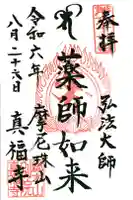 奉拝
弘法大師
薬師如来
令和六年
八月二十六日
摩尼珠山
真福寺